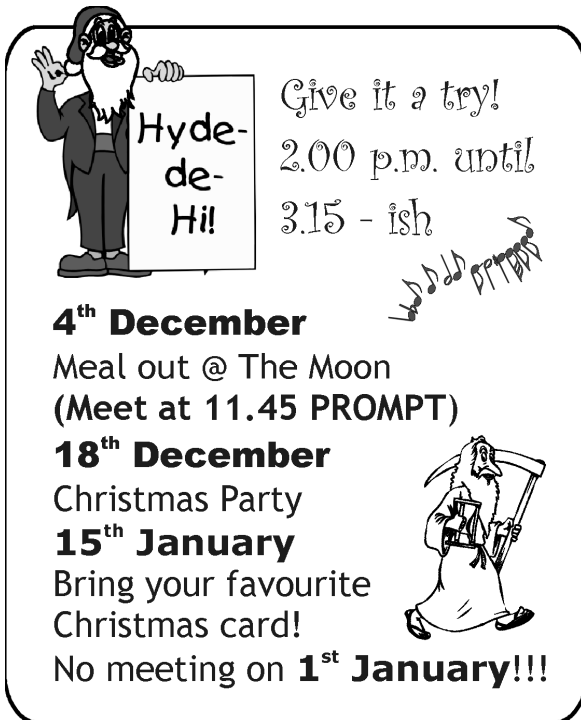 Hyde-
de-
Hi!
Give it a try!
2.00 p.m. until
3.15 - ish
4th December
Meal out @ The Moon
(Meet at 11.45 PROMPT)
18th December
Christmas Party
15th January
Bring your favourite
Christmas card!
No meeting on 1st January!!!